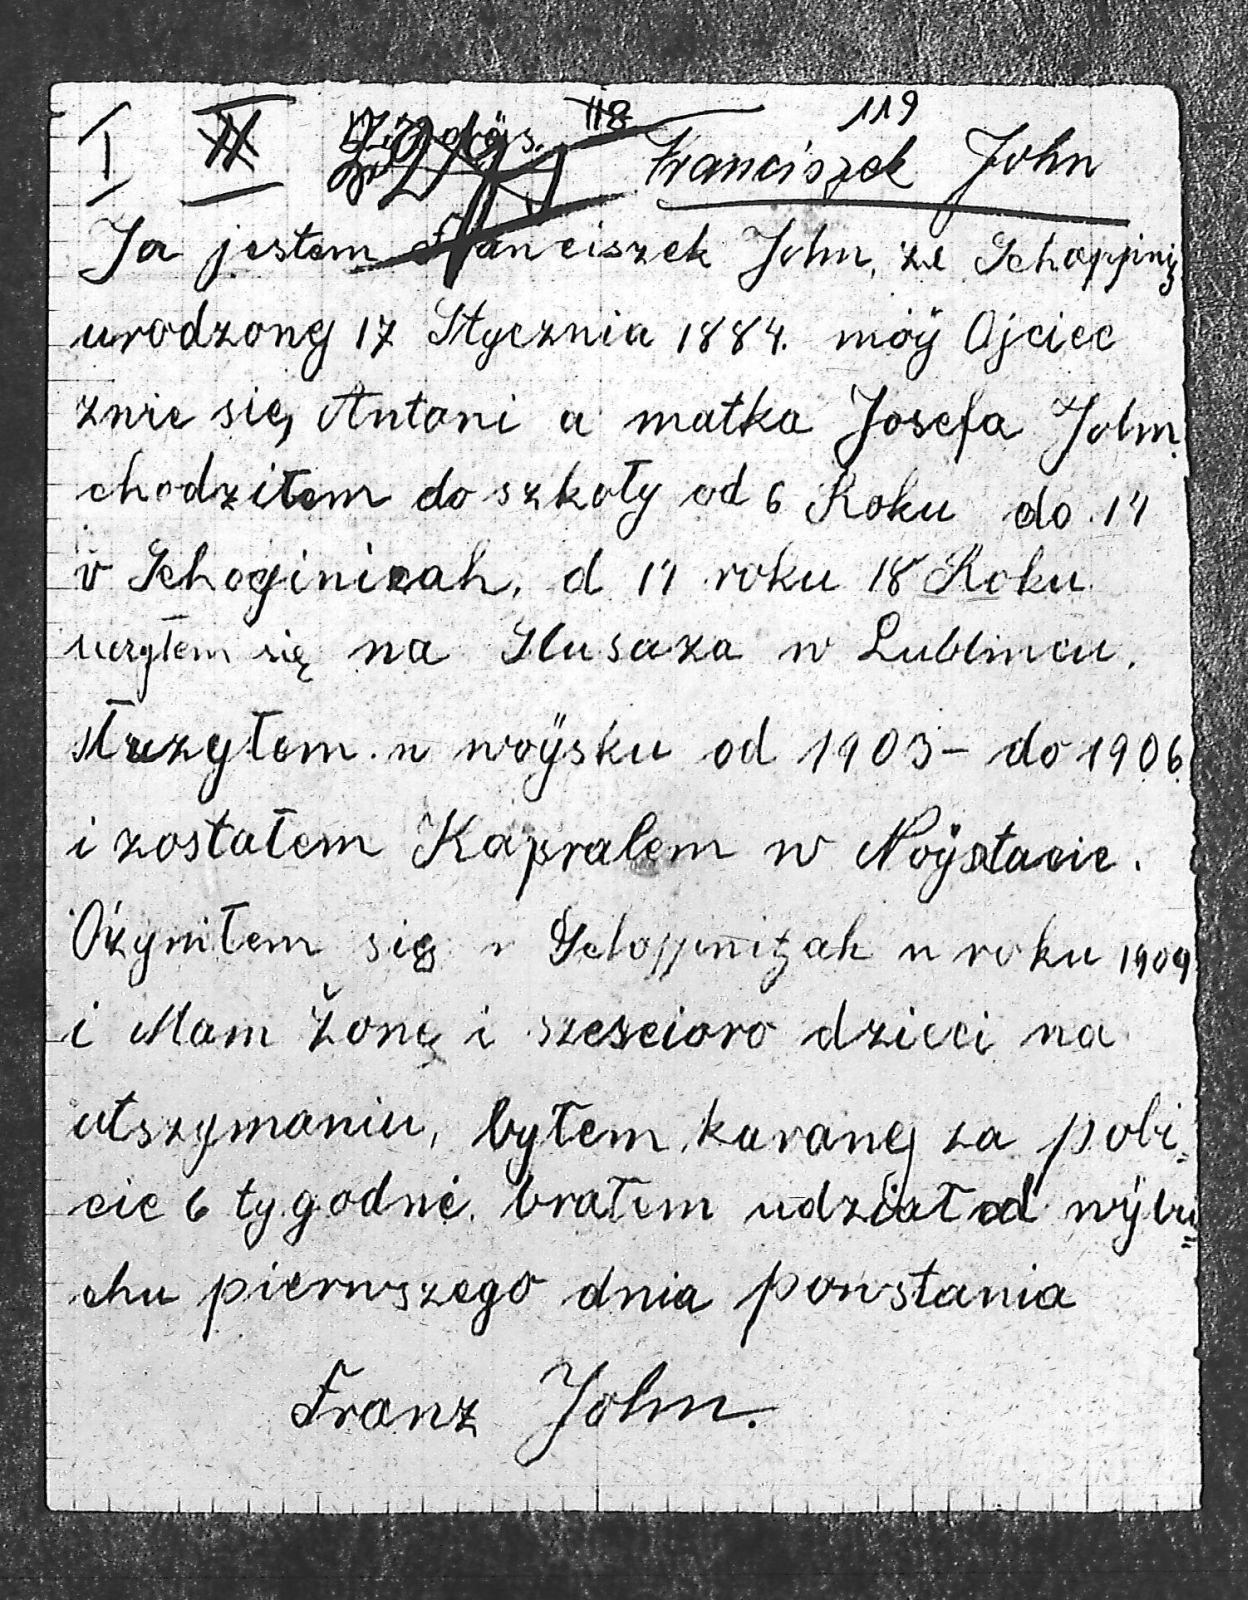 I II 118 119
Franciszek John
Ja jestem Franciszek John, ze Schoppiniz
urodzony 17 Stycznia 1884. möÿ Ojciec
znie się, Antoni a matka Josefa John.
chodziłem do szkoły od 6 Roku do 14
v Schoginicah, d 14 roku 18 Roku
uczyłem się na Slusaza w Lublincu.
służyłem w woÿsku od 1903 – do 1906
i zostałem Kapralem w Noÿstacie.
Ożyniłem się w Schoppinitzah w roku 1909
i Mam Żonę i szescioro dzieci na
utszymaniu, byłem karany za pobi=
cie 6 tygodne. brałem udział od wÿbu=
chu pierwszego dnia powstania
Franz John.